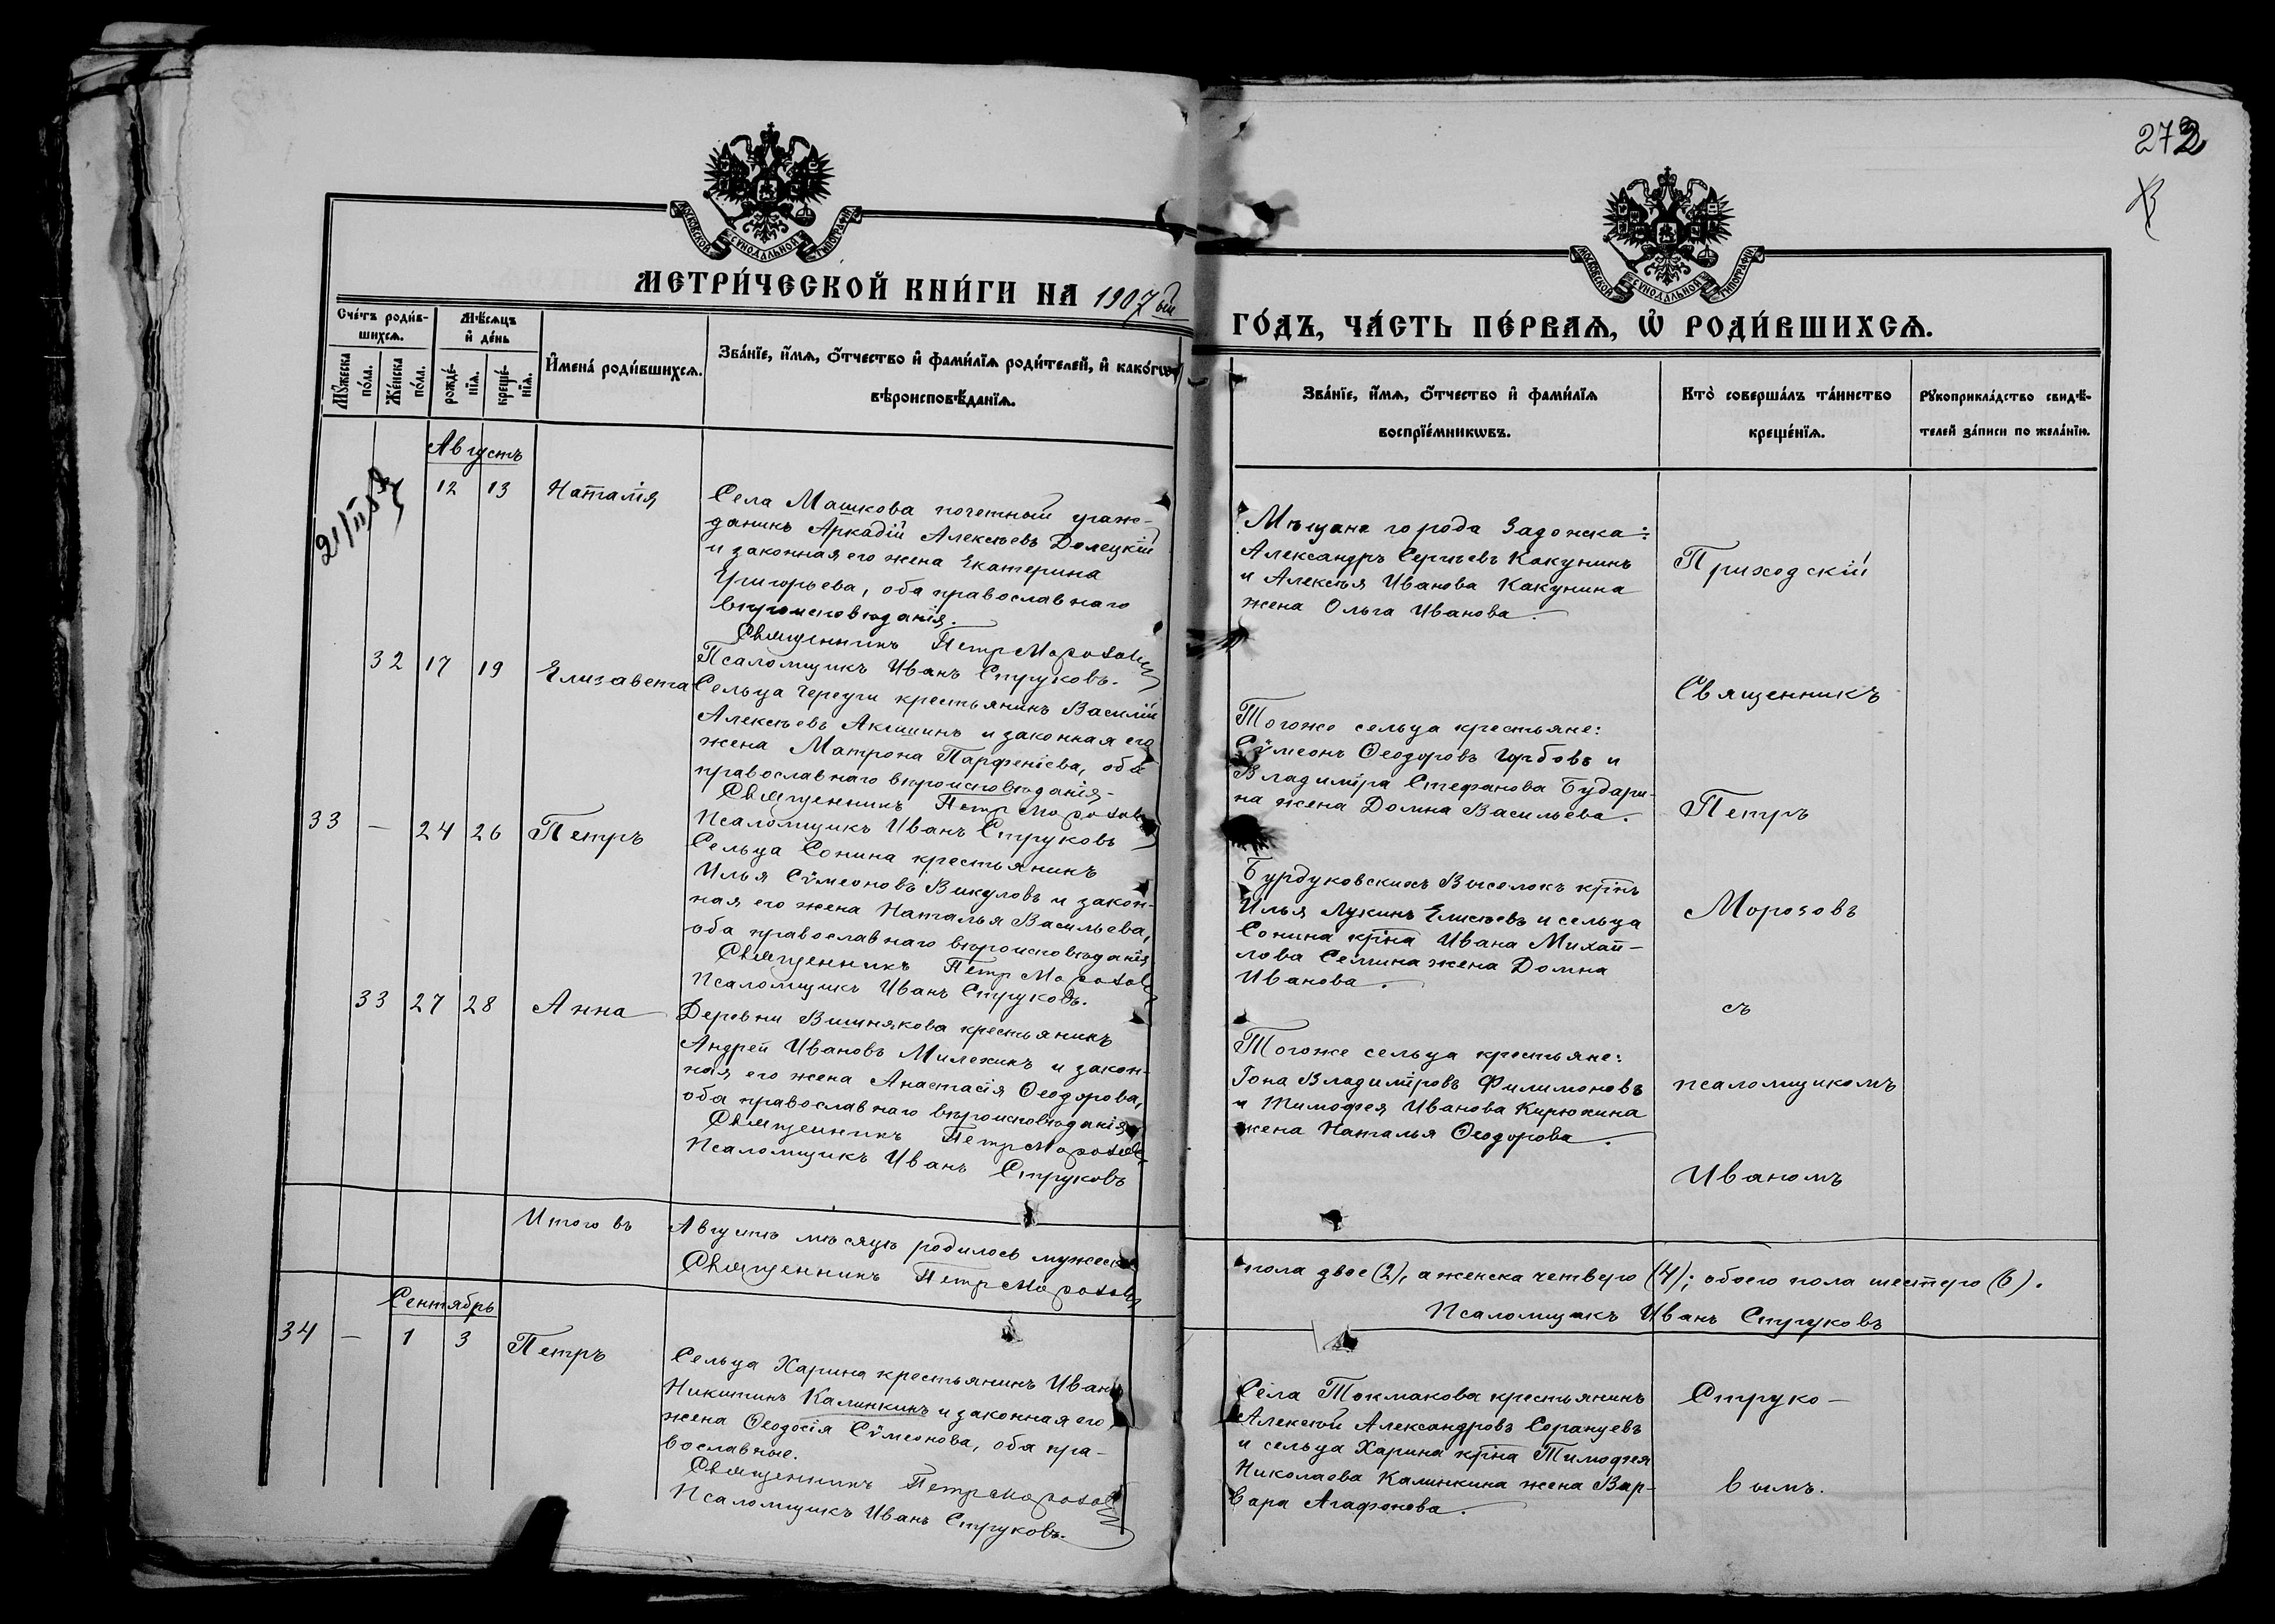 272
МОСКОВСКОЙ СѴНОДАЛЬНОЙ ТИПОГРАФІИ
МОСКОВСКОЙ СѴНОДАЛЬНОЙ ТИПОГРАФІИ
МЕТРИ́ЧЕСКОЙ КНИ́ГИ НА 1907 ый
ГО́ДЪ, ЧА́СТЬ ПЕ́РВАѦ, Ѽ РОДИ́ВШИХСѦ.
Сче́тъ роди́в-
шихсѧ.
Мѣ́сѧцъ
и҆ де́нь
Мꙋ́жеска
по́ла.
Же́нска
по́ла.
рожде́-
нїѧ.
креще́-
нїѧ.
И҆мена̀ роди́вшихсѧ.
Зва́нїе, и҆́мѧ, ѻ҆́тчество и҆ фами́лїѧ роди́телей, и҆ како́гѡ
вѣроисповѣ́данїѧ.
Зва́нїе, и҆́мѧ, ѻ҆́тчество и҆ фами́лїѧ
воспрїе́мникѡвъ.
Кто̀ соверша́лъ та́инство
креще́нїѧ.
Рꙋкоприкла́дство свидѣ́-
телей за́писи по жела́нїю.
Августъ
12 13 Наталія
Села Машкова почетный граж-
данинъ Аркадій Алексѣевъ Долецкій
и законная его жена Екатерина
Григорьева, оба православнаго
вѣроисповѣданія.
Священникъ Петр Морозовъ
Псаломщикъ Иванъ Струковъ.
Мѣщане города Задонска:
Александръ Сергѣевъ Какунинъ
и Алексѣя Иванова Какунина
жена Ольга Иванова.
32 17 19 Елизавета
Сельца Черепги крестьянинъ Василій
Алексѣевъ Акишинъ и законная его
жена Матрона Парфеніева, оба
православнаго вѣроисповѣданія.
Священникъ Петр Морозовъ
Псаломщикъ Иванъ Струковъ
Тогоже сельца крестьяне:
Сѵмеонъ Ѳеодоровъ Горбовъ и
Владиміра Стефанова Будари-
на жена Домна Васильева.
33 — 24 26 Петръ
Сельца Сонина крестьянинъ
Илья Сѵмеоновъ Викуловъ и закон-
ная его жена Наталья Васильева,
оба православнаго вѣроисповѣданія
Священникъ Петр Морозовъ
Псаломщикъ Иванъ Струковъ.
Бурдуковскихъ Выселокъ кр̄нъ
Илья Лукинъ Елисѣевъ и сельца
Сонина кр̄на Ивана Михай-
лова Семина жена Домна
Иванова.
33 27 28 Анна
Деревни Вишнякова крестьянинъ
Андрей Ивановъ Милехинъ и закон-
ная его жена Анастасія Ѳеодорова,
оба православнаго вѣроисповѣданія
Священникъ Петр Морозовъ
Псаломщикъ Иванъ Струковъ
Тогоже сельца крестьяне:
Іона Владиміровъ Филимоновъ
и Тимофея Иванова Кирюхина
жена Наталья Ѳеодорова.
Приходскій
Священникъ
Петръ
Морозовъ
съ
псаломщикомъ
Иваномъ
Струко-
вымъ.
Итого въ Августѣ мѣсяцѣ родилось мужеска
пола двое (2), а женска четверо (4); обоего пола шестеро (6).
Священникъ Петр Морозовъ
Псаломщикъ Иванъ Струковъ
Сентябрь
34 — 1 3 Петръ
Сельца Харина крестьянинъ Иванъ
Никитинъ Калинкинъ и законная его
жена Ѳеодосія Сѵмеонова, оба пра-
вославные.
Священникъ Петр Морозовъ
Псаломщикъ Иванъ Струковъ.
Села Токмакова крестьянинъ
Алексѣй Александровъ Соранцевъ
и сельца Харина кр̄на Тимофея
Николаева Калинкина жена Вар-
вара Агафонова.